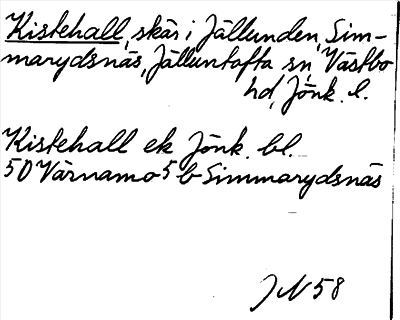 Kistehall, skär i Jällunden, Sim-
marydsnäs, Jälluntofta sn, Västbo
hd, Jönk. l.
Kistehall ek Jönk. bl.
5D Värnamo 5 b Simmarydsnäs
JN 58